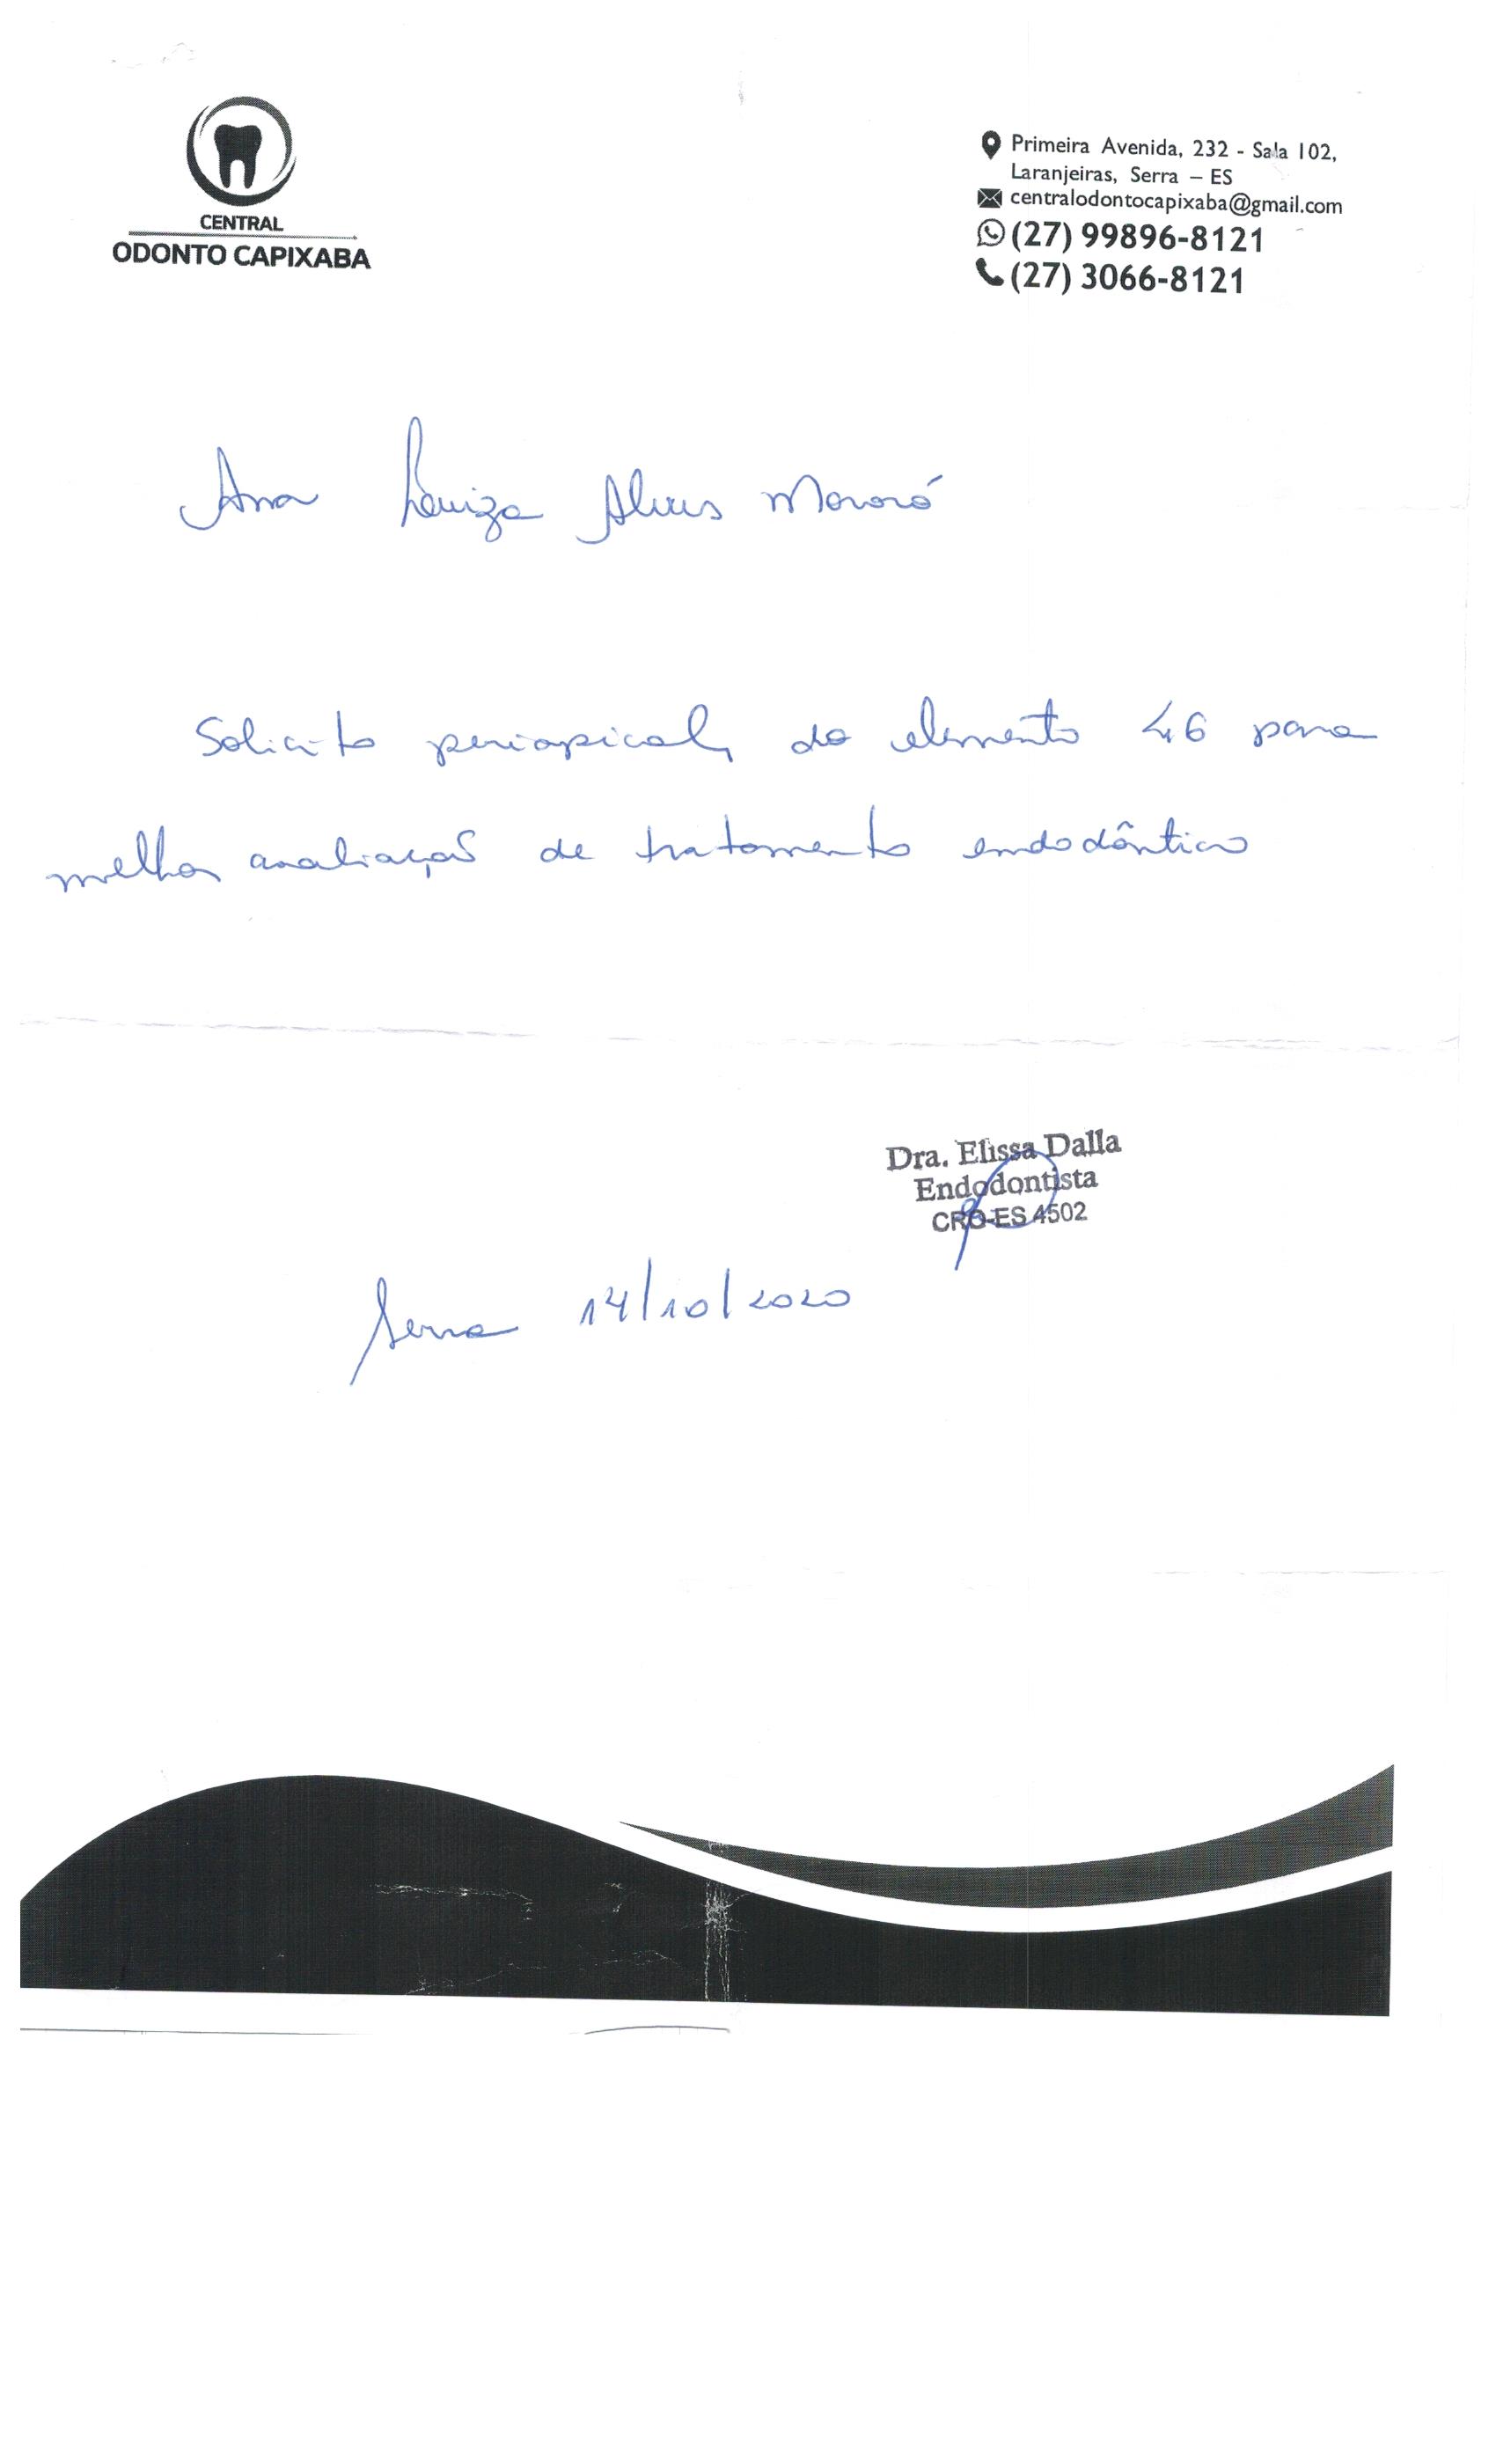 CENTRAL
ODONTO CAPIXABA
Primeira Avenida, 232 - Sala 102,
Laranjeiras, Serra – ES
centralodontocapixaba@gmail.com
(27) 99896-8121
(27) 3066-8121
Ana Louiza Alves Mororó
Solicito periapical do elemento 46 para
melhor avaliação de tratamento endodôntico
Dra. Elissa Dalla
Endodontista
CRO-ES 4502
Serra 14/10/2020